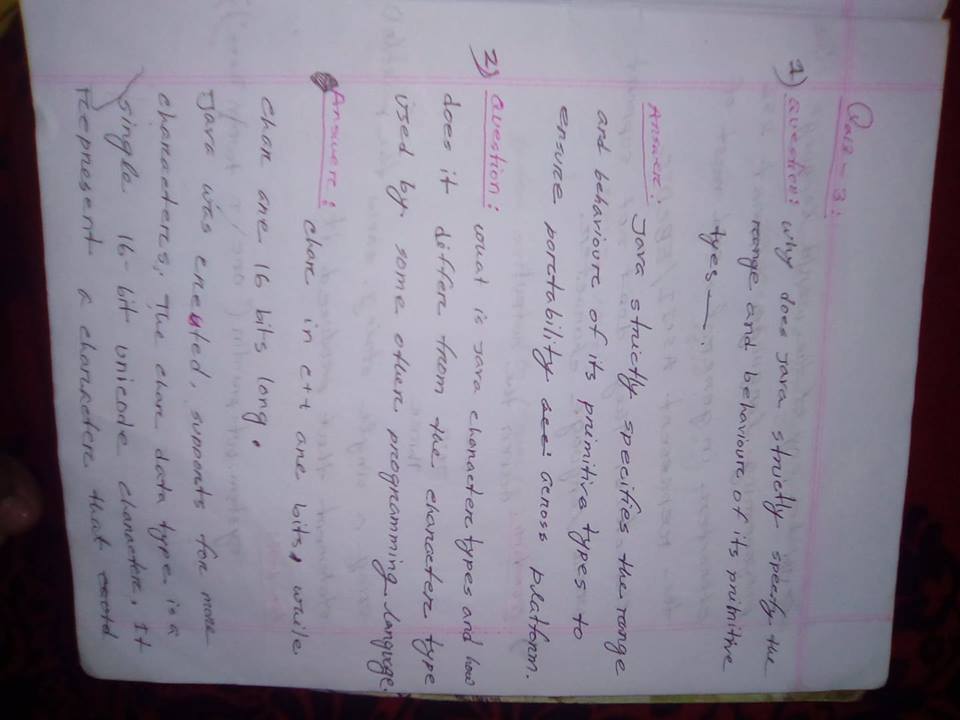 Quiz - 3:
1) Question: Why does Java strictly specify the
range and behaviour of its primitive
tyes — .
Answer: Java strictly specifies the range
and behaviour of its primitive types to
ensure portability across platform.
2) Question: What is Java character types and how
does it differ from the character type
used by some other programming language.
Answer:
char in c++ are bits, while
char are 16 bits long.
Java was created, supports for more
characters. The char data type is a
single 16-bit unicode character. It
represent a character that could